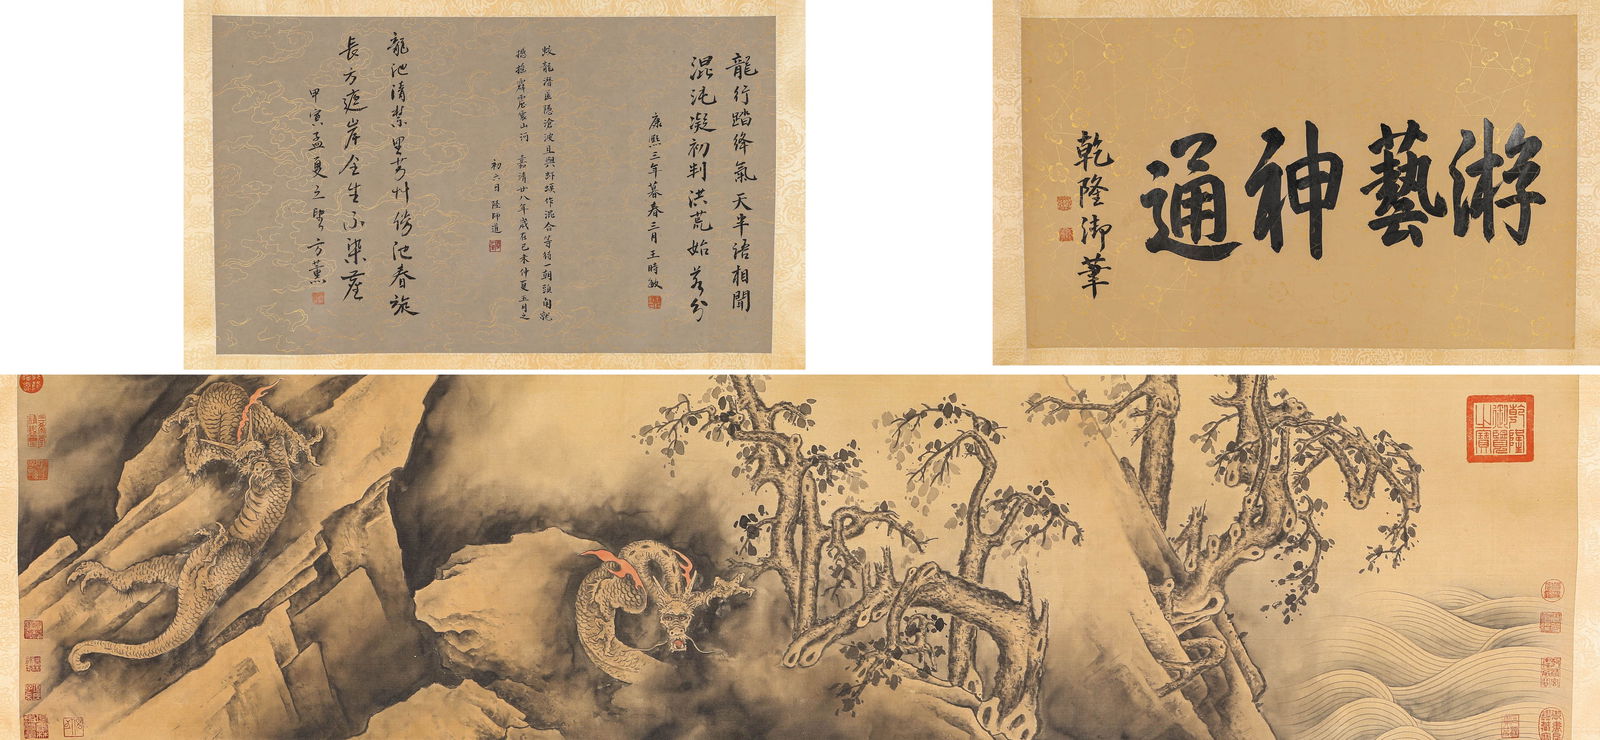 游藝神通
乾隆御筆
龍行踏絳氣天半語相聞
混沌凝初判洪荒始若分
康熙三年暮春三月王時敏
蛟龍潛匿隱滄波且與蝦蟆作混合等待一朝頭角就
撼搖霹靂震山河 嘉清廿八年歲在己未仲夏五月之
初六日 陸師道
龍池清禁里芳草傍池春旋
長方遮岸全生不染塵
甲寅孟夏之望方薰
乾隆御覽之寶